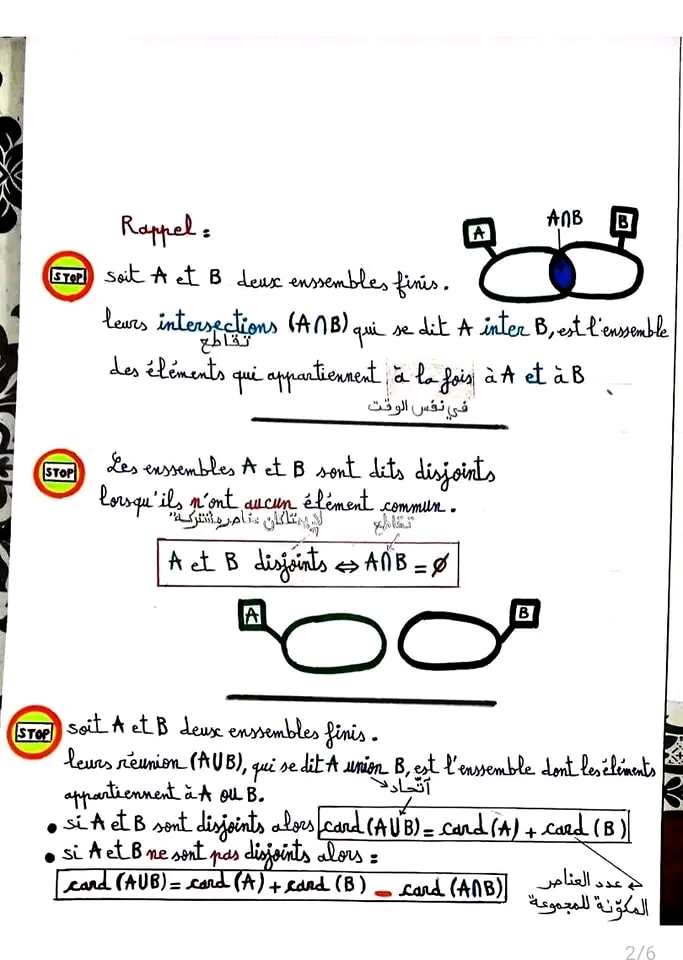 Rappel :
A∩B
A
B
STOP
soit A et B deux enssembles finis.
leurs intersections (A∩B) qui se dit A inter B, est l'enssemble
تقاطع
des éléments qui appartiennent à la fois à A et à B
في نفس الوقت
STOP
Les enssembles A et B sont dits disjoints
lorsqu'ils n'ont aucun élément commun.
تقاطع
A et B disjoints ⇔ A∩B = ∅
A
B
STOP
soit A et B deux enssembles finis.
leurs réunion (A∪B), qui se dit A union B, est l'enssemble dont les éléments
آتّحاد
appartiennent à A ou B.
• si A et B sont disjoints alors card (A∪B) = card (A) + card (B)
• si A et B ne sont pas disjoints alors :
card (A∪B) = card (A) + card (B) - card (A∩B)
عدد العناصر
المكوّنة للمجموعة
2/6